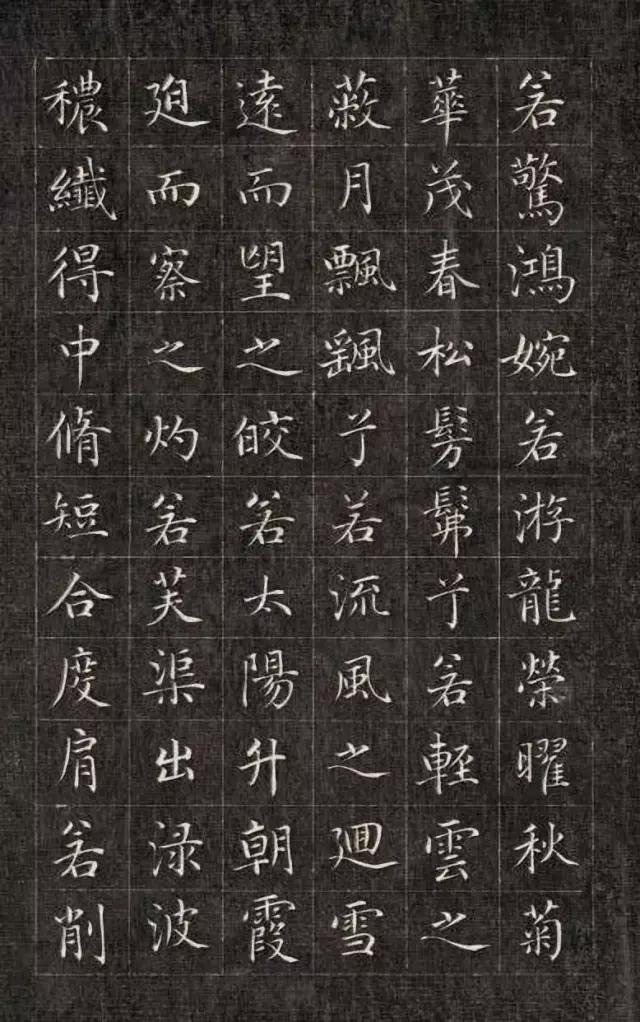 若驚鴻婉若游龍榮曜秋菊
華茂春松髣髴兮若輕雲之
蔽月飄颻兮若流風之廻雪
遠而望之皎若太陽升朝霞
迫而察之灼若芙渠出淥波
穠纖得中脩短合度肩若削